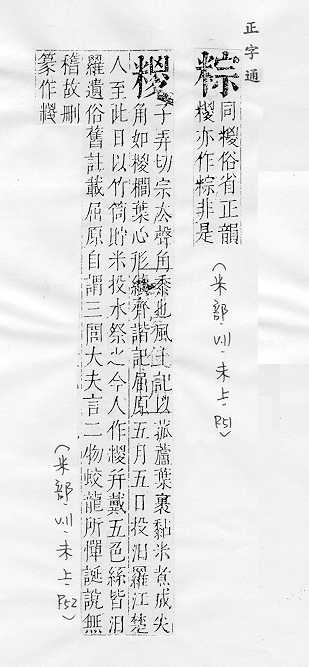 正字通
粽
同糉俗省正韻
糉亦作粽非是
(米部.VII.未上.P51)
糉
子弄切宗去聲角黍也風土記以菰蘆葉裹黏米煮成尖
角如糉櫚葉心形續齊諧記屈原五月五日投汨羅江楚
人至此日以竹筒貯米投水祭之今人作糉幷戴五色絲皆汨
羅遺俗舊註載屈原自謂三閭大夫言二物蛟龍所憚誕說無
稽故刪
篆作糉
(米部.VII.未上.P52)